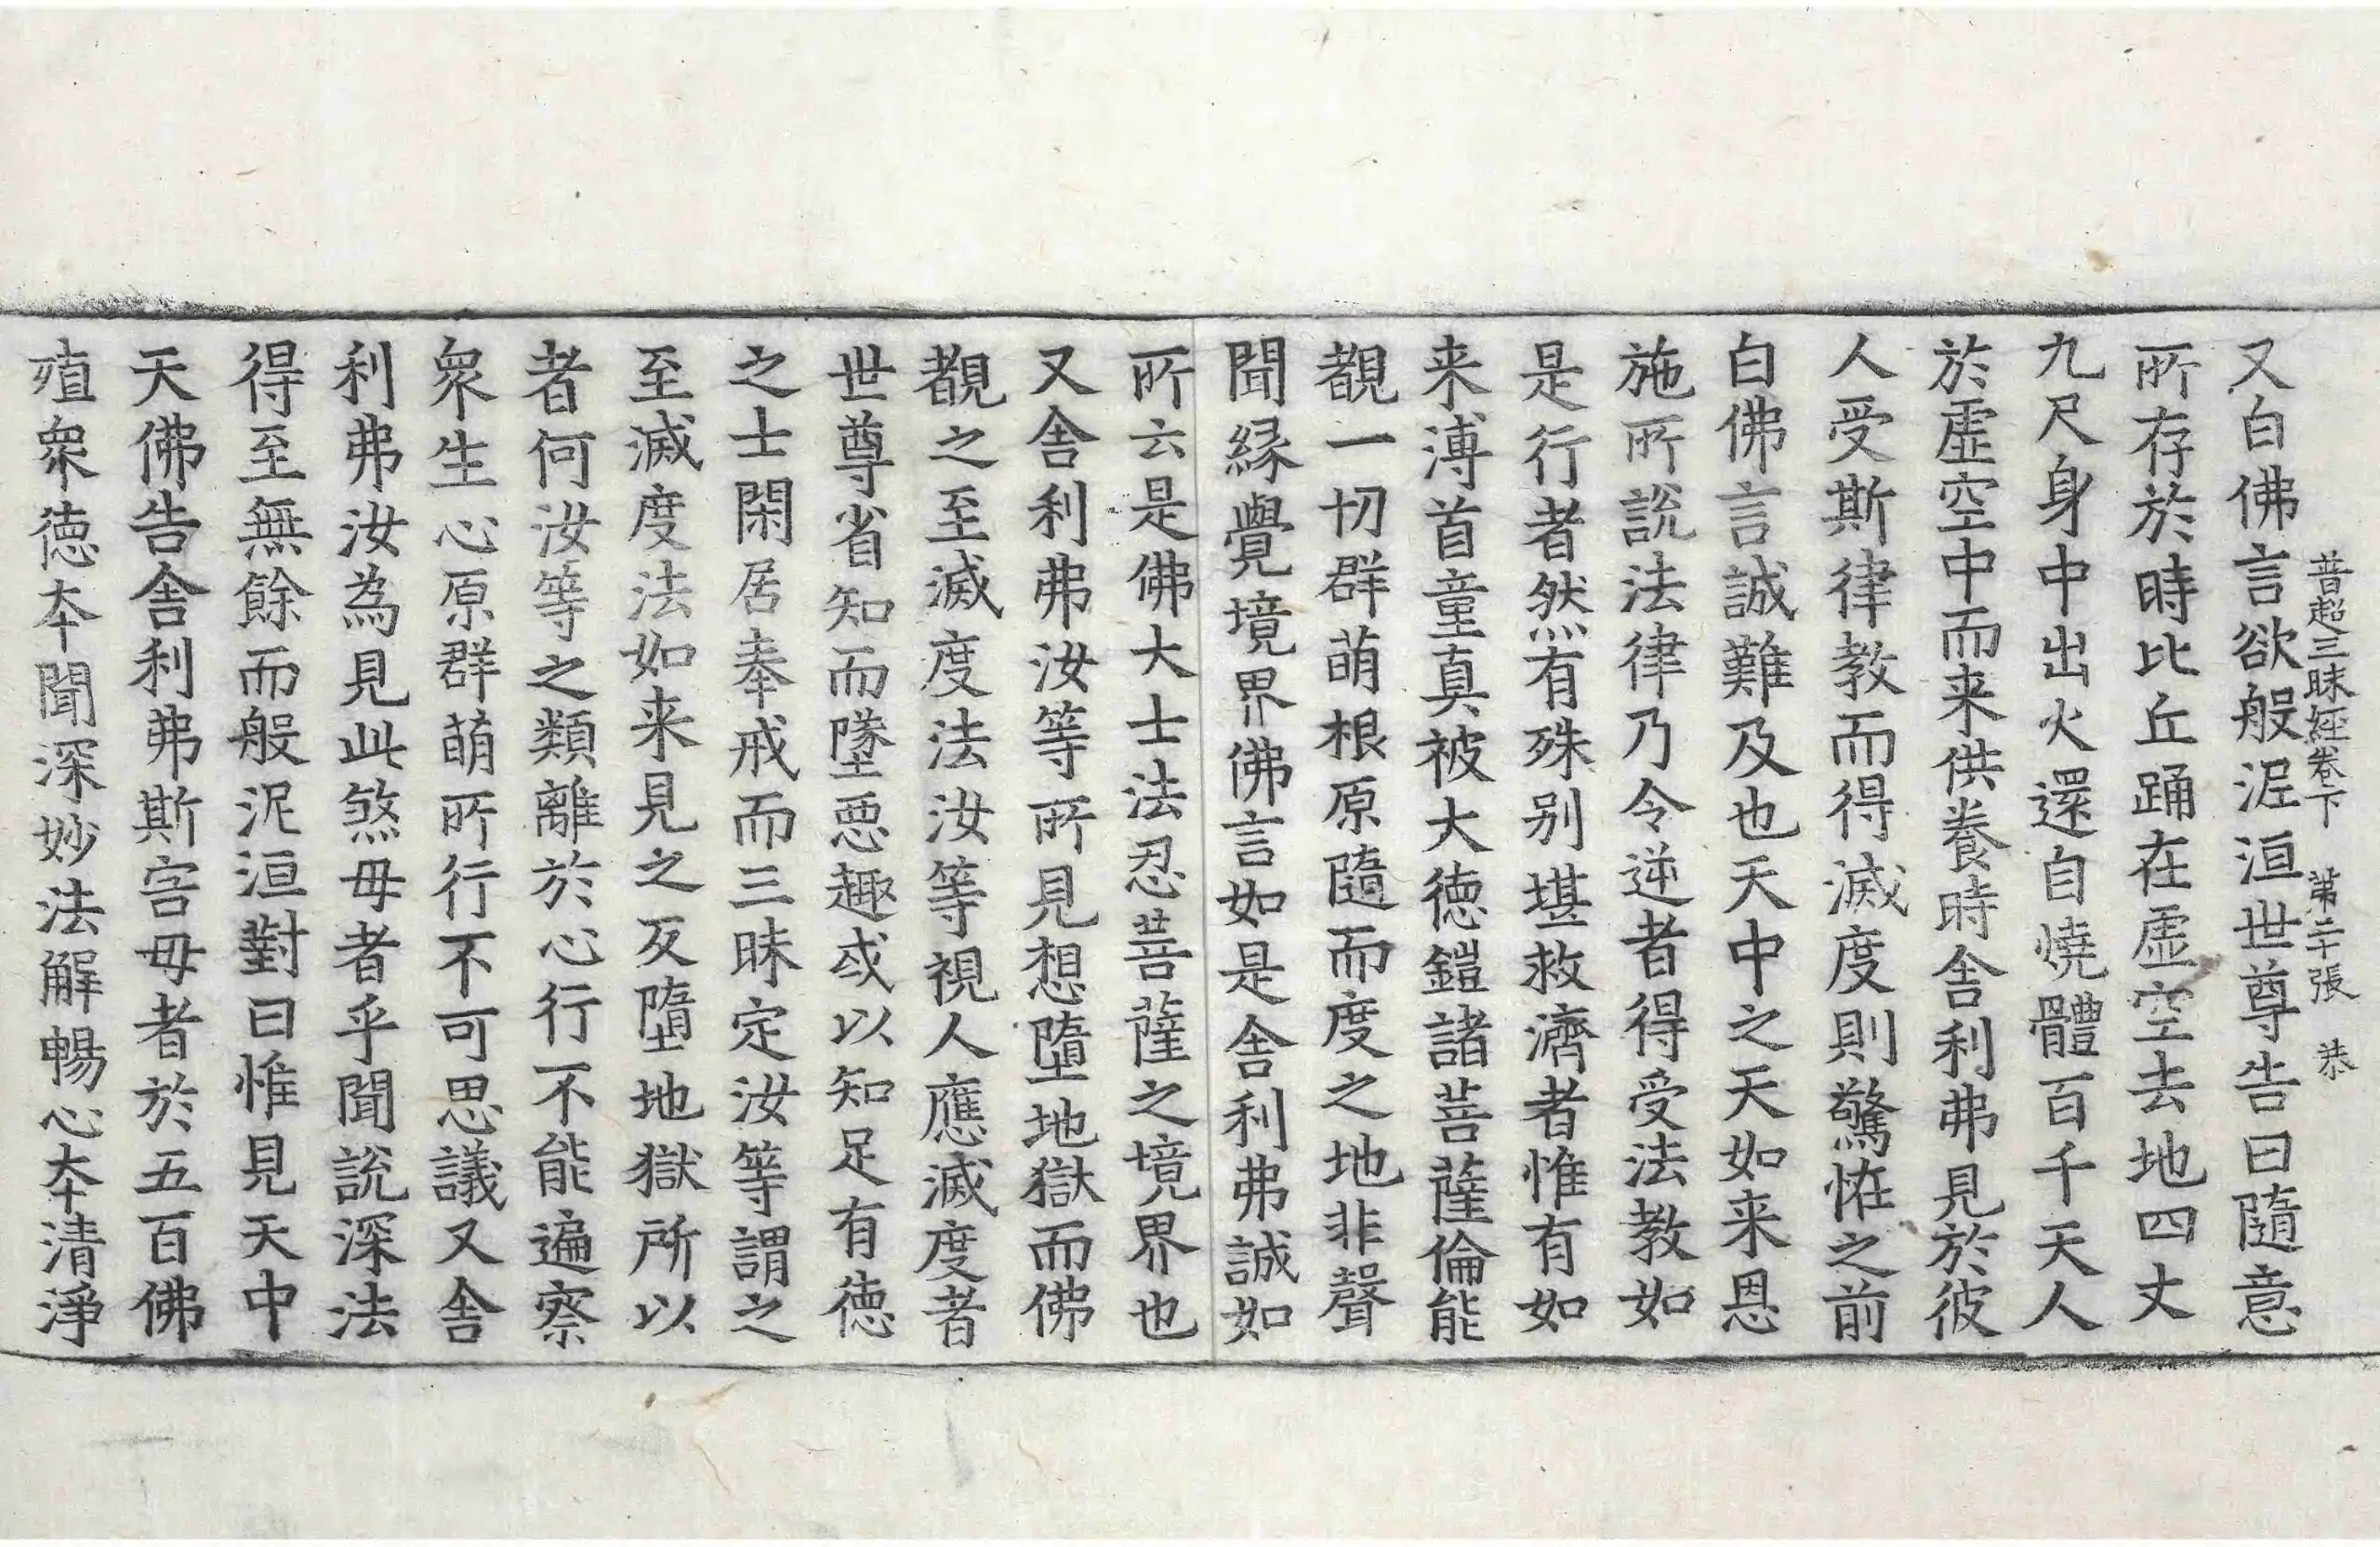 普超三昧經卷下 第二十張 恭
又白佛言欲般泥洹世尊告曰隨意
所存於時比丘踊在虛空去地四丈
九尺身中出火還自燒體百千天人
於虛空中而来供養時舎利弗見於彼
人受斯律教而得滅度則驚怪之前
白佛言誠難及也天中之天如来恩
施所說法律乃令逆者得受法教如
是行者然有殊别堪救濟者惟有如
来溥首童真被大德鎧諸菩薩倫能
覩一切群萌根原隨而度之地非聲
聞緣覺境界佛言如是舎利弗誠如
所云是佛大士法忍菩薩之境界也
又舎利弗汝等所見想墮地獄而佛
覩之至滅度法汝等視人應滅度者
世尊省知而墜惡趣或以知足有德
之士閑居奉戒而三昧定汝等謂之
至滅度法如来見之反墮地獄所以
者何汝等之類離於心行不能遍察
衆生心原群萌所行不可思議又舎
利弗汝為見此煞母者乎聞說深法
得至無餘而般泥洹對曰惟見天中
天佛告舎利弗斯害母者於五百佛
殖衆德本聞深妙法解暢心本清淨